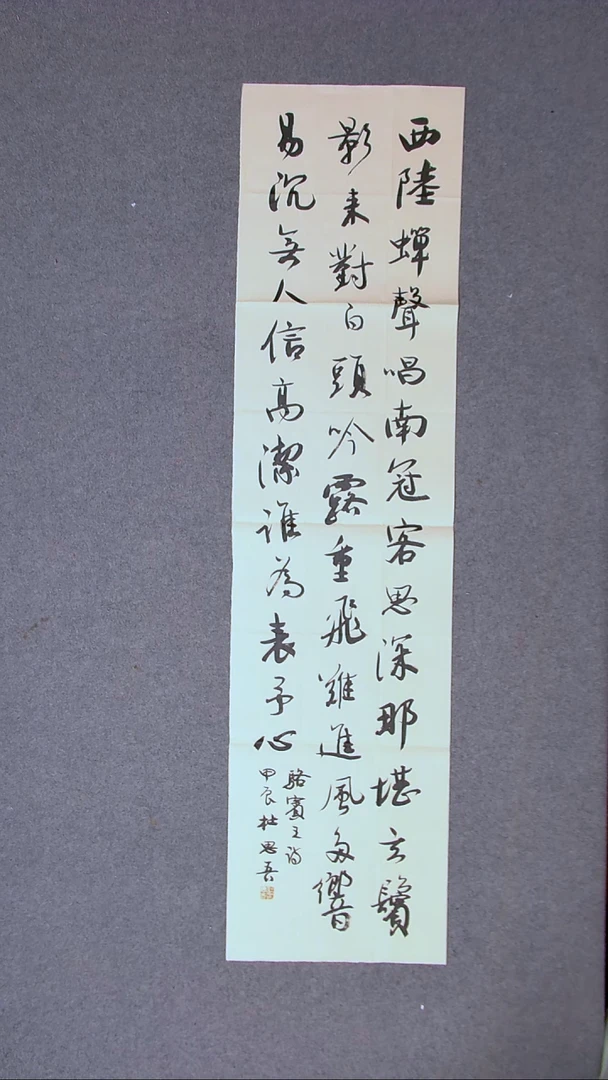 西陸蟬聲唱南冠客思深那堪玄鬢
影來對白頭吟露重飛難進風多響
易沉無人信高潔誰為表予心
駱賓王詩
甲辰杜思吾